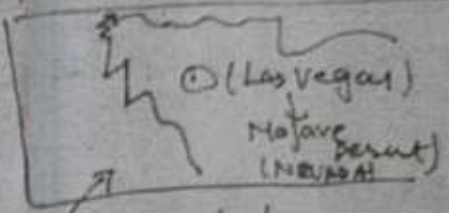 (Las vegas)
Mojave
Desert)
(NEVADA)